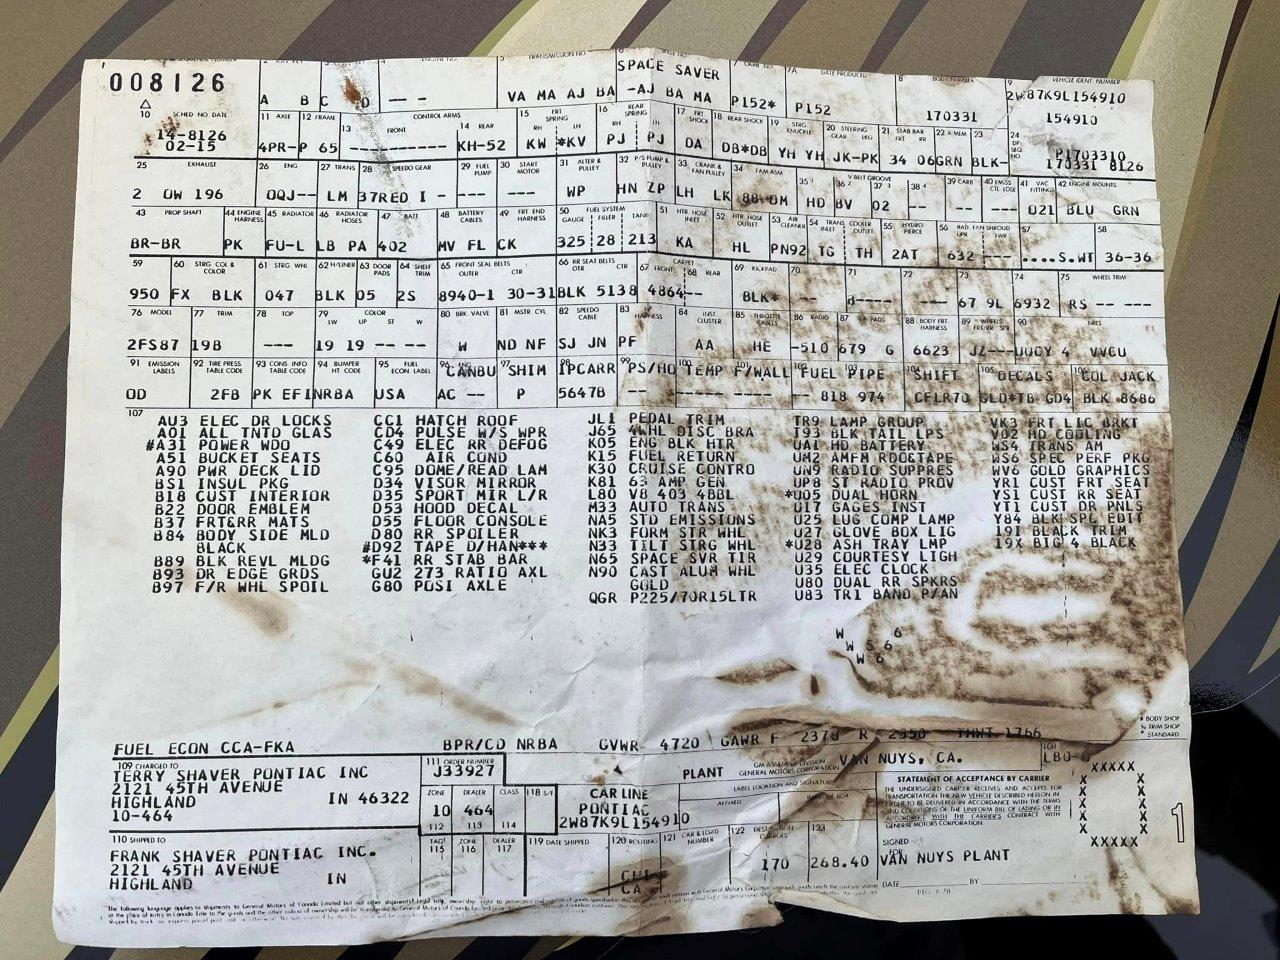 008126
TRANSMISSION NO
SPACE SAVER
DATE PRODUCED
VEHICLE IDENT. NUMBER
A B C D -- -
VA MA AJ BA -AJ BA MA
P152* P152
170331
2W87K9L154910
154910
10 SCHED NO DATE
14-8126
02-15
11 AXLE 12 FRAME 13 CONTROL ARMS FRONT 14 REAR 15 FRT SPRING RH LH 16 REAR SPRING RH LH 17 FRT SHOCK 18 REAR SHOCK 19 STRG KNUCKLE 20 STEERING GEAR LKG 21 STAB BAR FRT RR 22 X MEM 23 24 DP SEQ NO
4PR-P 65 KH-52 KW *KV PJ PJ DA DB*DB YH YH JK-PK 34 06 GRN BLK-
P1703310
170331 8126
25 EXHAUST 26 ENG 27 TRANS 28 SPEEDO GEAR 29 FUEL PUMP 30 START MOTOR 31 ALTER & PULLEY 32 P/S PUMP & PULLEY 33 CRANK & FAN PULLEY 34 FAN ASM 35 V BELT GROOVE 39 CARB 40 EMISS CTL LOSE 41 VAC FITTINGS 42 ENGINE MOUNTS
2 OW 196 OQJ-- LM 37RED I - --- --- WP HN ZP LH LK HD BV 02 021 BLU GRN
43 PROP SHAFT 44 ENGINE HARNESS 45 RADIATOR 46 RADIATOR HOSES 47 BATT 48 BATTERY CABLES 49 FRT END HARNESS 50 FUEL SYSTEM GAUGE FILLER TANK 51 HTR HOSE INLET 52 HTR. HOSE OUTLET 53 AIR CLEANER 54 TRANS COOLER INLET OUTLET 55 HYDRO PIERCE 56 RAD. FAN SHROUD UPR LWR 57 58
BR-BR PK FU-L LB PA 402 MV FL CK 325 28 213 KA HL PN92 TG TH 2AT 632 ---- ....S.WT 36-36
59 60 STRG COL & COLOR 61 STRG WHL 62 H/LINER 63 DOOR PADS 64 SHELF TRIM 65 FRONT SEAT BELTS OUTER CTR 66 RR SEAT BELTS OTR CTR 67 FRONT CARPET 68 REAR 69 KICKPAD 70 71 72 73 74 75 WHEEL TRIM
950 FX BLK 047 BLK 05 2S 8940-1 30-31 BLK 5138 4864-- BLK* -- 8---- --- 67 9L 6932 RS -- ---
76 MODEL 77 TRIM 78 TOP 79 COLOR LW UP ST W 80 BRK VALVE 81 MSTR CYL 82 SPEEDO CABLE 83 HARNESS 84 INST CLUSTER 85 THROTTLE CABLES 86 RADIO 87 88 BODY FRT HARNESS 89 90 TIRES
2FS87 19B --- 19 19 -- -- W ND NF SJ JN PF AA HE -510 679 G 6623
91 EMISSION LABELS 92 TIRE PRESS TABLE CODE 93 CONS. INFO TABLE CODE 94 BUMPER HT CODE 95 FUEL ECON LABEL 96 CANBU 97 SHIM IPCARR 99 PS/HO TEMP F/WALL FUEL PIPE SHIFT DECALS COL JACK
OD 2FB PK EFI NRBA USA AC -- P 5647B -- --- ---- -- 818 974 CFLR70 GLD*TB GD4 BLK 8686
107
AU3 ELEC DR LOCKS CC1 HATCH ROOF JL1 PEDAL TRIM TR9 LAMP GROUP VK3 FRT LIC BRKT
A01 ALL TNTD GLAS CD4 PULSE W/S WPR J65 4WHL DISC BRA T93 BLK TAIL LPS V02 HD COOLING
#A31 POWER WDO C49 ELEC RR DEFOG K05 ENG BLK HTR UA1 HD BATTERY WS4 TRANS AM
A51 BUCKET SEATS C60 AIR COND K15 FUEL RETURN UM2 AMFM RDO&TAPE WS6 SPEC PERF PKG
A90 PWR DECK LID C95 DOME/READ LAM K30 CRUISE CONTRO UN9 RADIO SUPPRES WV6 GOLD GRAPHICS
BS1 INSUL PKG D34 VISOR MIRROR K81 63 AMP GEN UP8 ST RADIO PROV YR1 CUST FRT SEAT
B18 CUST INTERIOR D35 SPORT MIR L/R L80 V8 403 4BBL *U05 DUAL HORN YS1 CUST RR SEAT
B22 DOOR EMBLEM D53 HOOD DECAL M33 AUTO TRANS U17 GAGES INST YT1 CUST DR PNLS
B37 FRT&RR MATS D55 FLOOR CONSOLE NA5 STD EMISSIONS U25 LUG COMP LAMP Y84 BLK SPC EDIT
B84 BODY SIDE MLD D80 RR SPOILER NK3 FORM STR WHL U27 GLOVE BOX LIG 19I BLACK TRIM
BLACK #D92 TAPE D/HAN*** N33 TILT STRG WHL *U28 ASH TRAY LMP 19X BIG 4 BLACK
B89 BLK REVL MLDG *F41 RR STAB BAR N65 SPACE SVR TIR U29 COURTESY LIGH
B93 DR EDGE GRDS GU2 273 RATIO AXL N90 CAST ALUM WHL U35 ELEC CLOCK
B97 F/R WHL SPOIL G80 POSI AXLE GOLD U80 DUAL RR SPKRS
QGR P225/70R15LTR U83 TRI BAND P/AN
W 6
W 5 6
W 6
# BODY SHOP
% TRIM SHOP
* STANDARD
FUEL ECON CCA-FKA BPR/CD NRBA GVWR 4720 GAWR F 2370 R 2350 1766
109 CHARGED TO
TERRY SHAVER PONTIAC INC
2121 45TH AVENUE
HIGHLAND IN 46322
10-464
111 ORDER NUMBER
J33927
ZONE DEALER CLASS 118 S/T
10 464
112 113 114
CAR LINE
PONTIAC
2W87K9L154910
PLANT GM ASSEMBLY DIVISION
GENERAL MOTORS CORPORATION
VAN NUYS, CA.
LABEL LOCATION AND SIGNATURE
AFFIXED
108
L80-
STATEMENT OF ACCEPTANCE BY CARRIER
THE UNDERSIGNED CARRIER RECEIVES AND ACCEPTS FOR
TRANSPORTATION THE NEW VEHICLE DESCRIBED HEREON IN
ORDER TO BE DELIVERED IN ACCORDANCE WITH THE TERMS
AND CONDITIONS OF THE UNIFORM BILL OF LADING OR IN
ACCORDANCE WITH THE CARRIER'S CONTRACT WITH
GENERAL MOTORS CORPORATION.
XXXXX
X X
X X
X X
X X
XXXXX
1
110 SHIPPED TO
FRANK SHAVER PONTIAC INC.
2121 45TH AVENUE
HIGHLAND IN
TAG 115 ZONE 116 DEALER 117
119 DATE SHIPPED 120 ROUTING 121 CAR & LOAD NUMBER 122 DESTINATION CHARGES 123
170 268.40
SIGNED
FOR
VAN NUYS PLANT
DATE BY